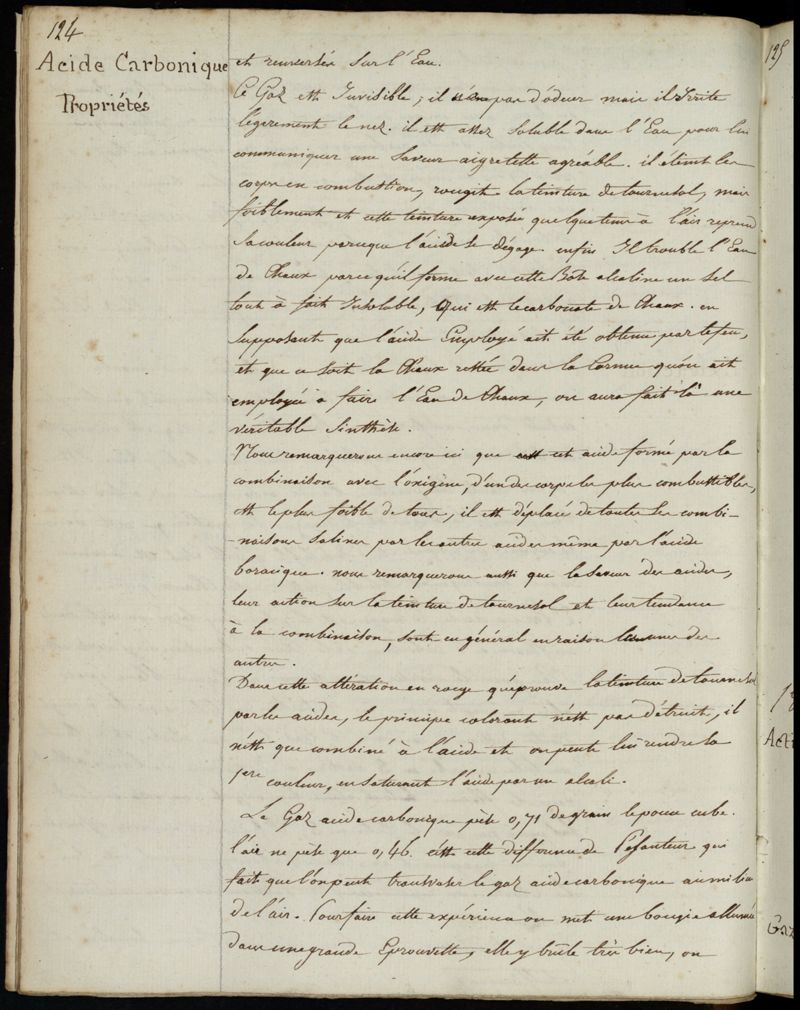 124
Acide Carbonique
Propriétés
et renversées sur l'Eau.
Ce Gaz est Invisible; il n'a pas d'odeur mais il Irrite
légerement le nez. il est assez soluble dans l'Eau pour lui
communiquer une saveur aigrelette agréable. il éteint les
corps en combustion, rougit la teinture de tournesol, mais
foiblement et cette teinture exposée quelque tems à l'air reprend
sa couleur parceque l'acide se dégage. enfin Il trouble l'Eau
de Chaux parce qu'il forme avec cette Base alcaline un Sel
tout à fait Insoluble, Qui est le carbonate de Chaux. en
supposant que l'acide Employé ait été obtenu par le feu,
et que ce soit la Chaux restée dans la Cornue qu'on ait
employée à faire l'Eau de Chaux, on aura fait là une
véritable Sinthèse.
Nous remarquerons encore ici que cet acide formé par la
combinaison avec l'oxigène, d'un des corps les plus combustibles,
est le plus foible de tous, il est déplacé de toutes les combi-
-naisons salines par les autres acides même par l'acide
boracique. nous remarquerons aussi que la saveur des acides,
leur action sur la teinture de tournesol et leur tendance
à la combinaison, sont en général en raison les unes des
autres.
Dans cette altération en rouge qu'éprouve la teinture de tournesol
par les acides, le principe colorant n'est pas détruit, il
n'est que combiné à l'acide et on peut lui rendre sa
1ere couleur, en saturant l'acide par un alcali.
Le Gaz acide carbonique pèse 0,71 de grain le pouce cube.
l'air ne pèse que 0,46. c'est cette différence de Pesanteur qui
fait que l'on peut transvaser le gaz acide carbonique au milieu
de l'air. Pour faire cette expérience on met une bougie allumée
dans une grande Eprouvette, elle y brûle très bien, on
125
Aci
Gaz